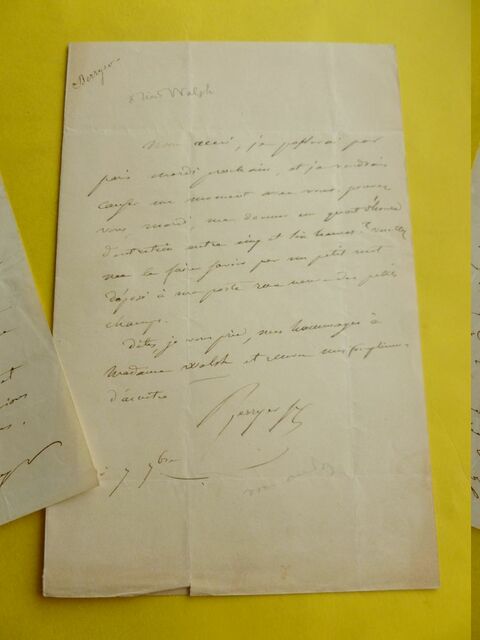 Berryer
Walsh
Mon ami, je passerai par
paris mardi prochain, et je voudrais
causer un moment avec vous. pouvez
vous, mardi, me donner un quart d'heure
d'entretien entre cinq et six heures? veuillez
me le faire savoir par un petit mot
déposé à ma porte rue neuve des petits
champs.
Dites, je vous prie, mes hommages à
Madame Walsh et recevez mes
d'amitié
Berryer fs
7 7bre